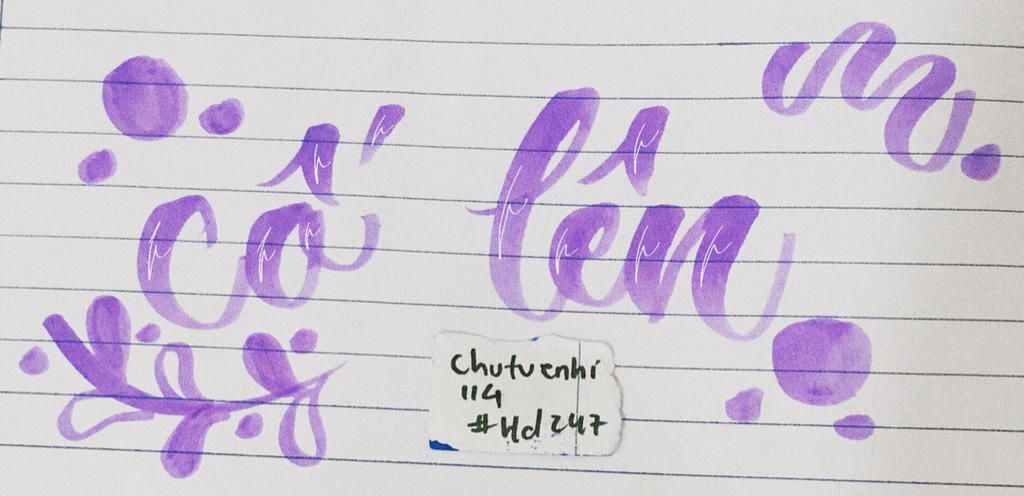 cố lên
Chutuenhi
114
#Hd247